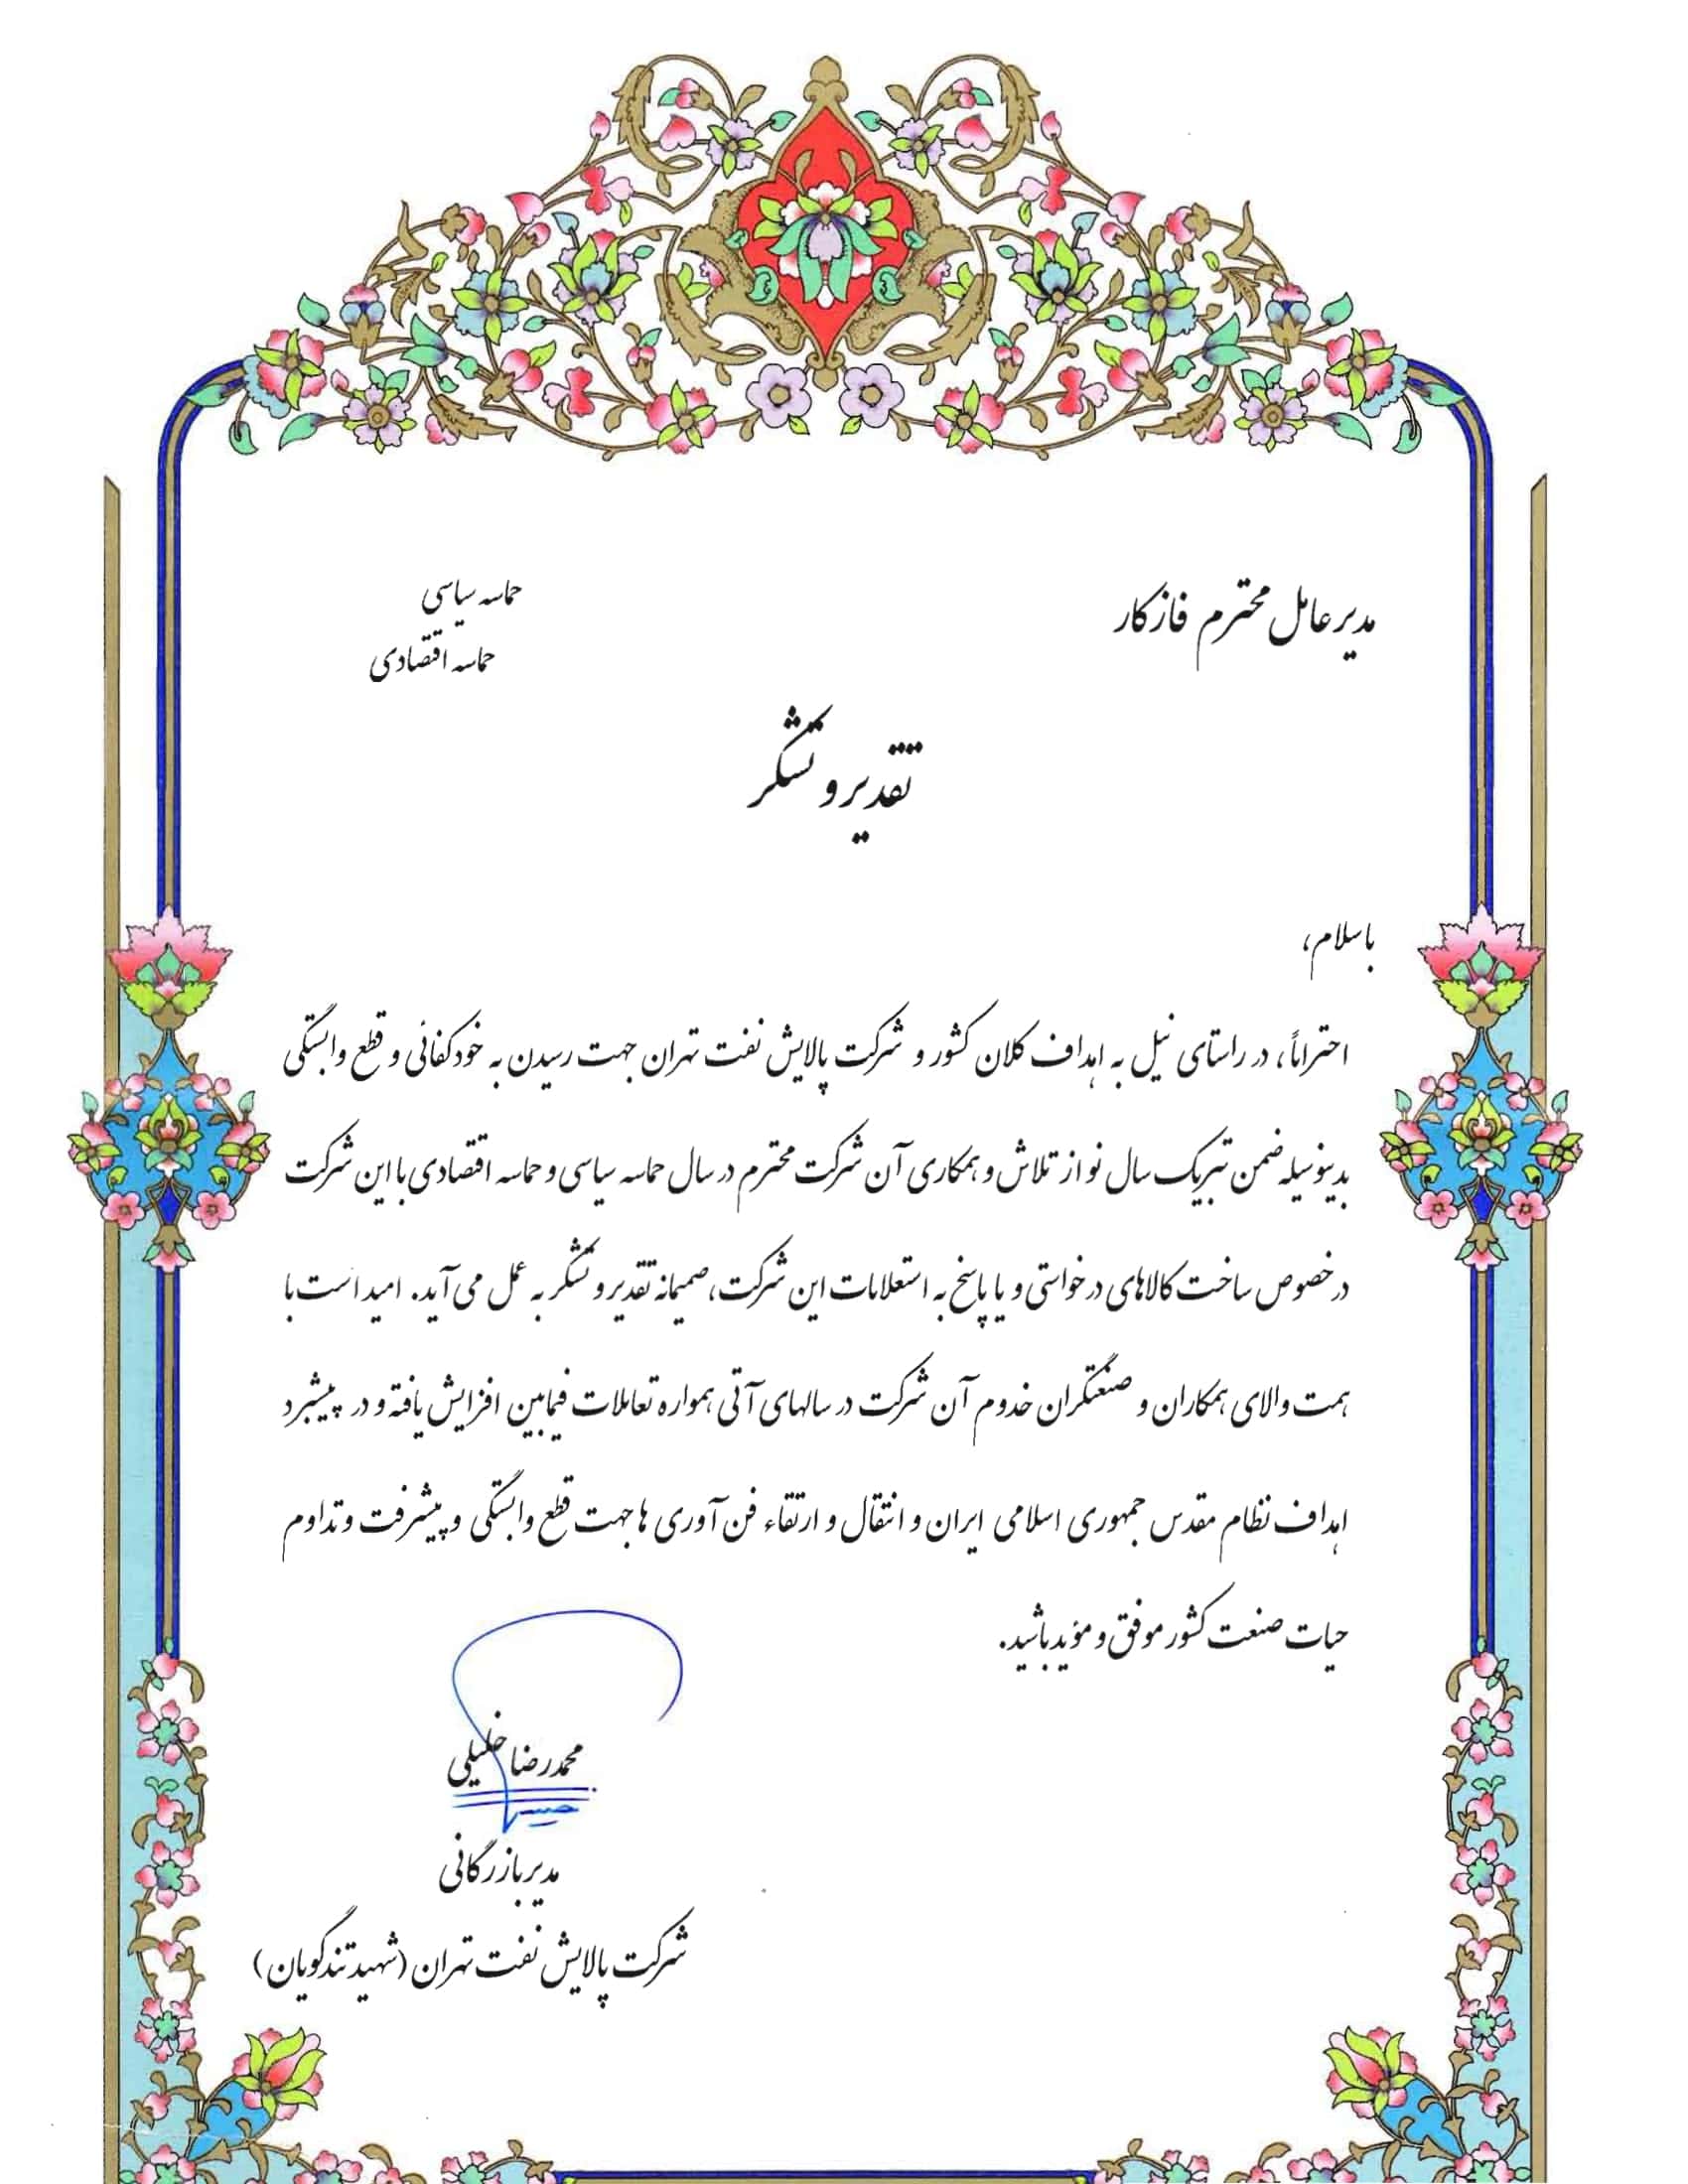 مدیر عامل محترم فازکار
حماسه سیاسی
حماسه اقتصادی
تقدیر و تشکر
با سلام،
احتراماً، در راستای نیل به اهداف کلان کشور و شرکت پالایش نفت تهران جهت رسیدن به خودکفائی و قطع وابستگی
بدینوسیله ضمن تبریک سال نو از تلاش و همکاری آن شرکت محترم در سال حماسه سیاسی و حماسه اقتصادی با این شرکت
در خصوص ساخت کالاهای درخواستی و یا پاسخ به استعلامات این شرکت، صمیمانه تقدیر و تشکر به عمل می آید. امید است با
همت والای همکاران و صنعتگران خدوم آن شرکت در سالهای آتی همواره تعاملات فیمابین افزایش یافته و در پیشبرد
اهداف نظام مقدس جمهوری اسلامی ایران و انتقال و ارتقاء فن آوری ها جهت قطع وابستگی و پیشرفت و تداوم
حیات صنعت کشور موفق و مؤید باشید.
محمدرضا خلیلی
مدیر بازرگانی
شرکت پالایش نفت تهران (شهید تندگویان)